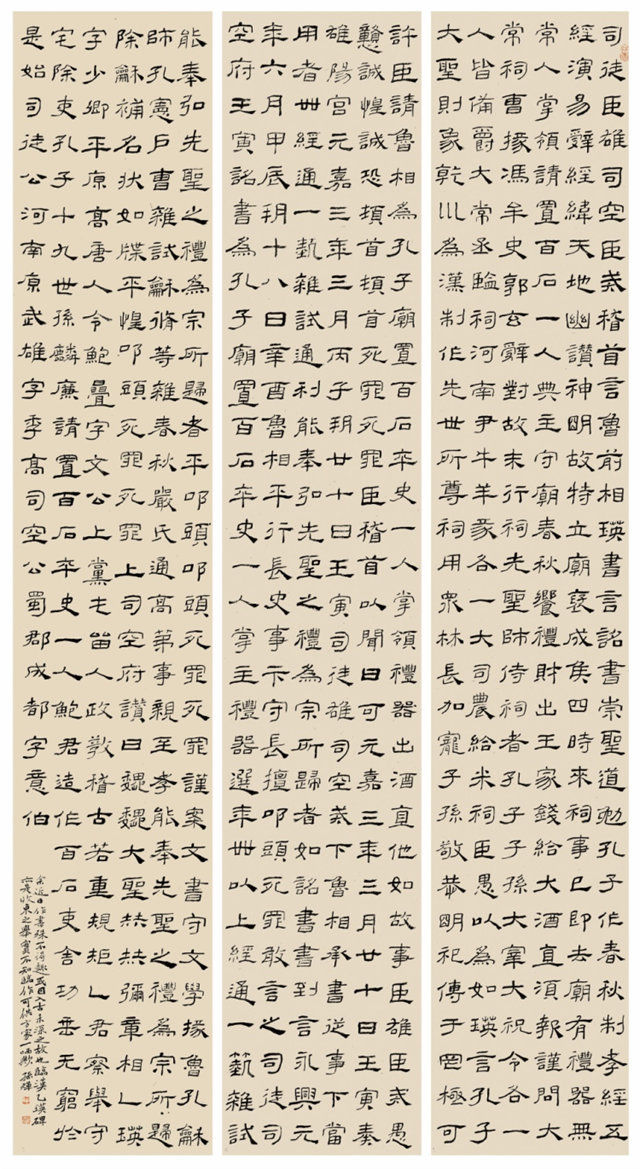 司徒臣雄司空臣戒稽首言魯前相瑛書言詔書崇聖道勉孔子作春秋制孝經五
經演易辭經緯天地幽讚神明故特立廟褒成侯四時來祠事已即去廟有禮器無
常人掌領請置百石一人典主守廟春秋饗禮財出王家錢給大酒直須報謹問大
常祠曹掾馮牟史郭玄辭對故末行祠先聖師侍祠者孔子子孫大宰大祝令各一
人皆備爵大常丞監祠河南尹牛羊豕各一大司農給米祠臣愚以為如瑛言孔子
大聖則象乾川為漢制作先世所尊祠用衆林長加寵子孫敬恭明祀傳于罔極可
許臣請魯相為孔子廟置百石卒史一人掌領禮器出酒直他如故事臣雄臣戒愚
戇誠惶誠恐頓首頓首死罪死罪臣稽首以聞曰可元嘉三年三月廿十日王寅奏
雄陽宮元嘉三年三月丙子朔廿十日王寅司徒雄司空戒下魯相承書從事下當
用者卌經通一埶雜試通利能奉弘先聖之禮為宗所歸者如詔書書到言永興元
年六月甲辰朔十八日辛酉魯相平行長史事卞守長擅叩頭死罪敢言之司徒司
空府王寅詔書為孔子廟置百石卒史一人掌主禮器選年卌以上經通一藝雜試
能奉弘先聖之禮為宗所歸者平叩頭叩頭死罪死罪謹案文書守文學掾魯孔龢
師孔憲戶曹雜試龢脩等雜春秋嚴氏通高第事親至孝能奉先聖之禮為宗所歸
除龢補名狀如牒平惶叩頭死罪死罪上司空府讚曰巍巍大聖赫赫彌章相乙瑛
字少卿平原高唐人令鮑疊字文公上黨屯留人政教稽古若重規矩乙君察舉守
宅除吏孔子十九世孫麟廉請置百石卒史一人鮑君造作百石吏舍功垂无窮於
是始司徒公河南原武雄字季高司空公蜀郡成都字意伯
余近日作書殊不得趣或因入古未深之故也臨漢乙瑛碑
亦是收束之舉實不知臨作可供方家一哂歟